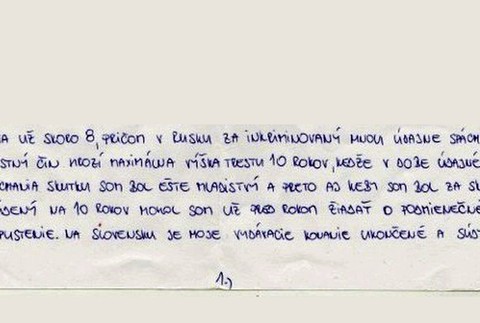 A UŽ SKORO 8, PRIČOM V RUSKU ZA INKRIMINOVANÝ MNOU ÚDAJNE SPÁCH
STNÝ ČIN HROZÍ MAXIMÁLNA VÝŠKA TRESTU 10 ROKOV, KEDŽE V DOBE ÚDAJNÉ
CHANIA SKUTKU SOM BOL EŠTE MLADISTVÝ A PRETO AJ KEBY SOM BOL ZA SK
DENÝ NA 10 ROKOV MOHOL SOM UŽ PRED ROKOM ŽIADAŤ O PODMIENEČNÉ
PUSTENIE. NA SLOVENSKU JE MOJE VYDÁVACIE KONANIE UKONČENÉ A SÚST
1.)